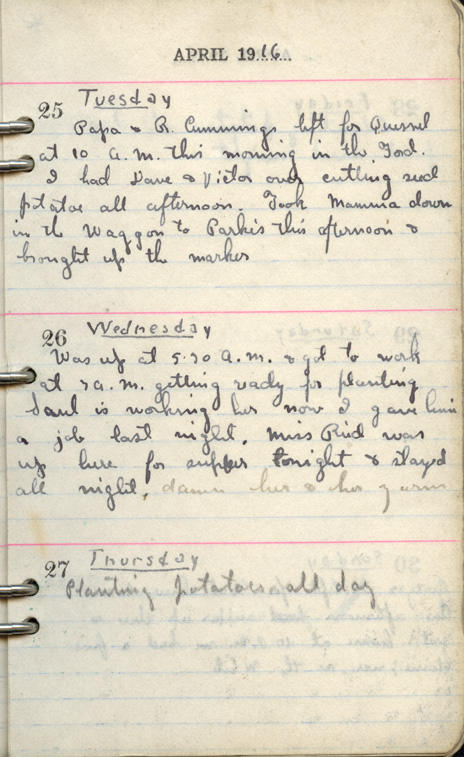 APRIL 1916
25 Tuesday
Papa & R. Cummings left for Quesnel
at 10 a.m. this morning in the Ford.
I had Dave & Victor over cutting seed
potatoe all afternoon. Took Mamma down
in the Waggon to Parkes this afternoon &
brought up the marker
26 Wednesday
Was up at 5.30 a.m. & got to work
at 7 a.m. getting ready for planting
Saul is working her now I gave him
a job last night. Miss Reid was
up here for supper tonight & stayed
all night. damn her & her
27 Thursday
Planting potatoes all day